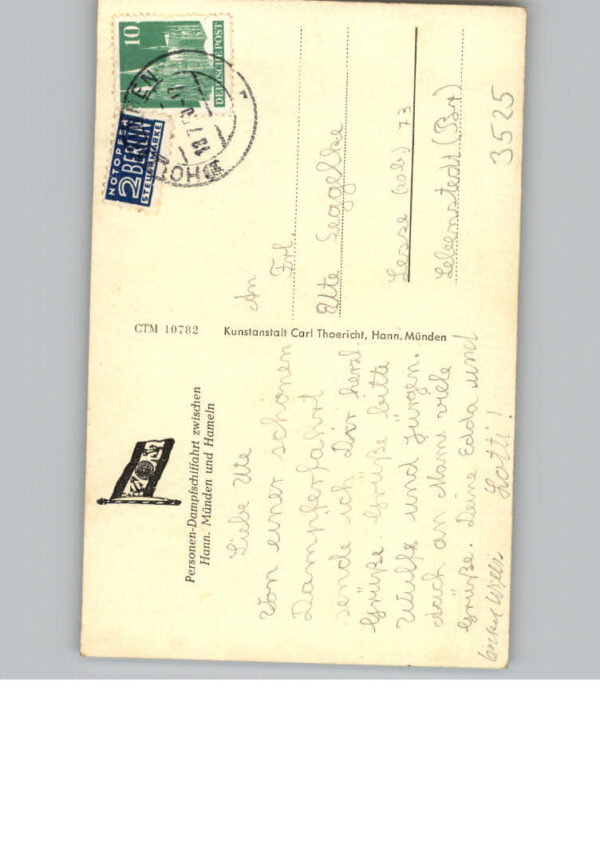 Personen-Dampfschiffahrt zwischen
Hann. Münden und Hameln
Liebe Ute
Von einer schönen
Dampferfahrt
sende ich Dir herzl.
Grüße. Grüße bitte
Wulfs und Jürgen.
doch an Mami viele
Grüße. Deine Edda und
Lotti!
CTM 10782
Kunstanstalt Carl Thoericht, Hann. Münden
10
DEUTSCHE POST
NOTOPFER
2 BERLIN
STEUERMARKE
An
Frl.
Ute
Lesse 73
Lebenstedt (Br)
3525